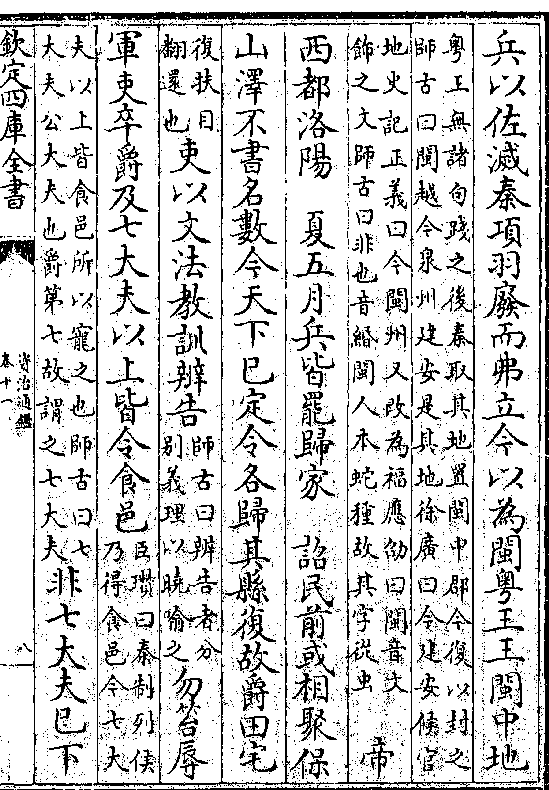 兵以佐滅秦項羽廢而弗立今以為閩粤王王閩中地
粤王無諸句踐之後秦取其地置閩中郡今復以封之
師古曰閩越今泉州建安是其地徐廣曰今建安候官
地史記正義曰今閩州又改為福應劭曰閩音文
飾之文師古曰非也音緡閩人本蛇種故其字從虫
帝
西都洛陽 夏五月兵皆罷歸家 詔民前或相聚保
山澤不書名數今天下已定令各歸其縣復故爵田宅
復扶目
翻還也
吏以文法教訓辨告
師古曰辨告者分
别義理以曉喻之
勿笞辱
軍吏卒爵及七大夫以上皆令食邑
臣瓚曰秦制列侯
乃得食邑今七大
夫以上皆食邑所以寵之也師古曰七
大夫公大夫也爵第七故謂之七大夫
非七大夫已下
欽定四庫全書
資治通鑑
卷十一
八